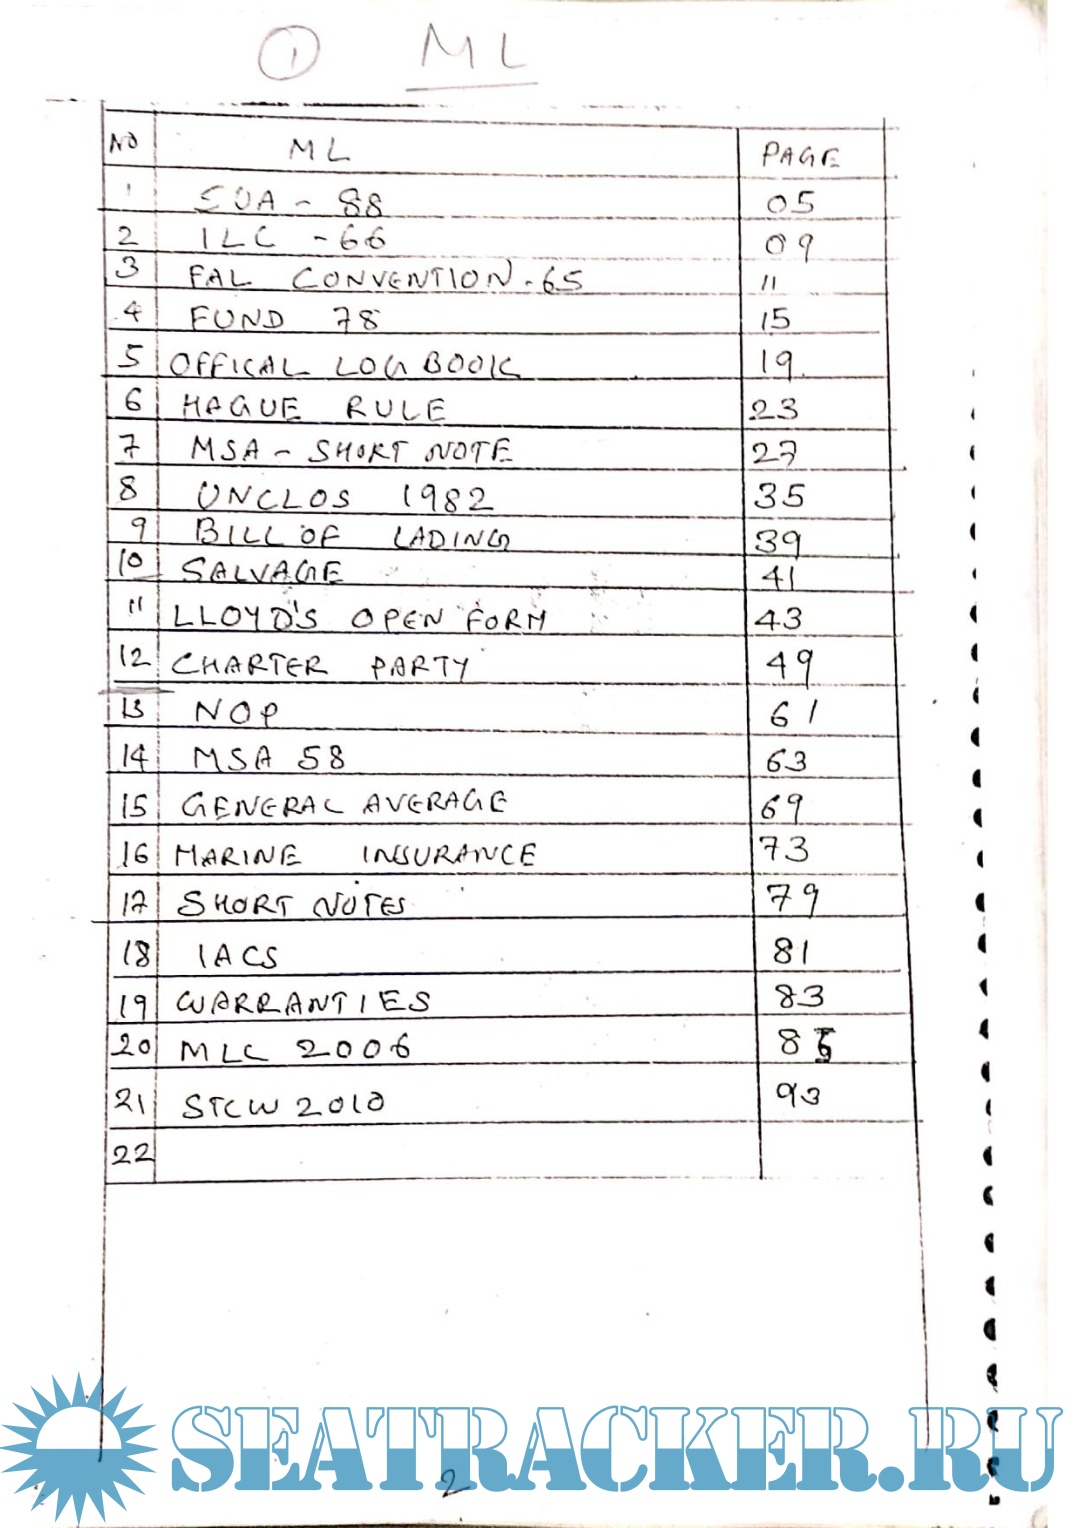 1 ML
NO ML PAGE
1 SUA - 88 05
2 ILC - 66 09
3 FAL CONVENTION - 65 11
4 FUND 78 15
5 OFFICAL LOG BOOK 19
6 HAGUE RULE 23
7 MSA - SHORT NOTE 27
8 UNCLOS 1982 35
9 BILL OF LADING 39
10 SALVAGE 41
11 LLOYD'S OPEN FORM 43
12 CHARTER PARTY 49
13 NOP 61
14 MSA 58 63
15 GENERAL AVERAGE 69
16 MARINE INSURANCE 73
17 SHORT NOTES 79
18 IACS 81
19 WARRANTIES 83
20 MLC 2006 85
21 STCW 2010 93
22
SEATRACKER.RU
2